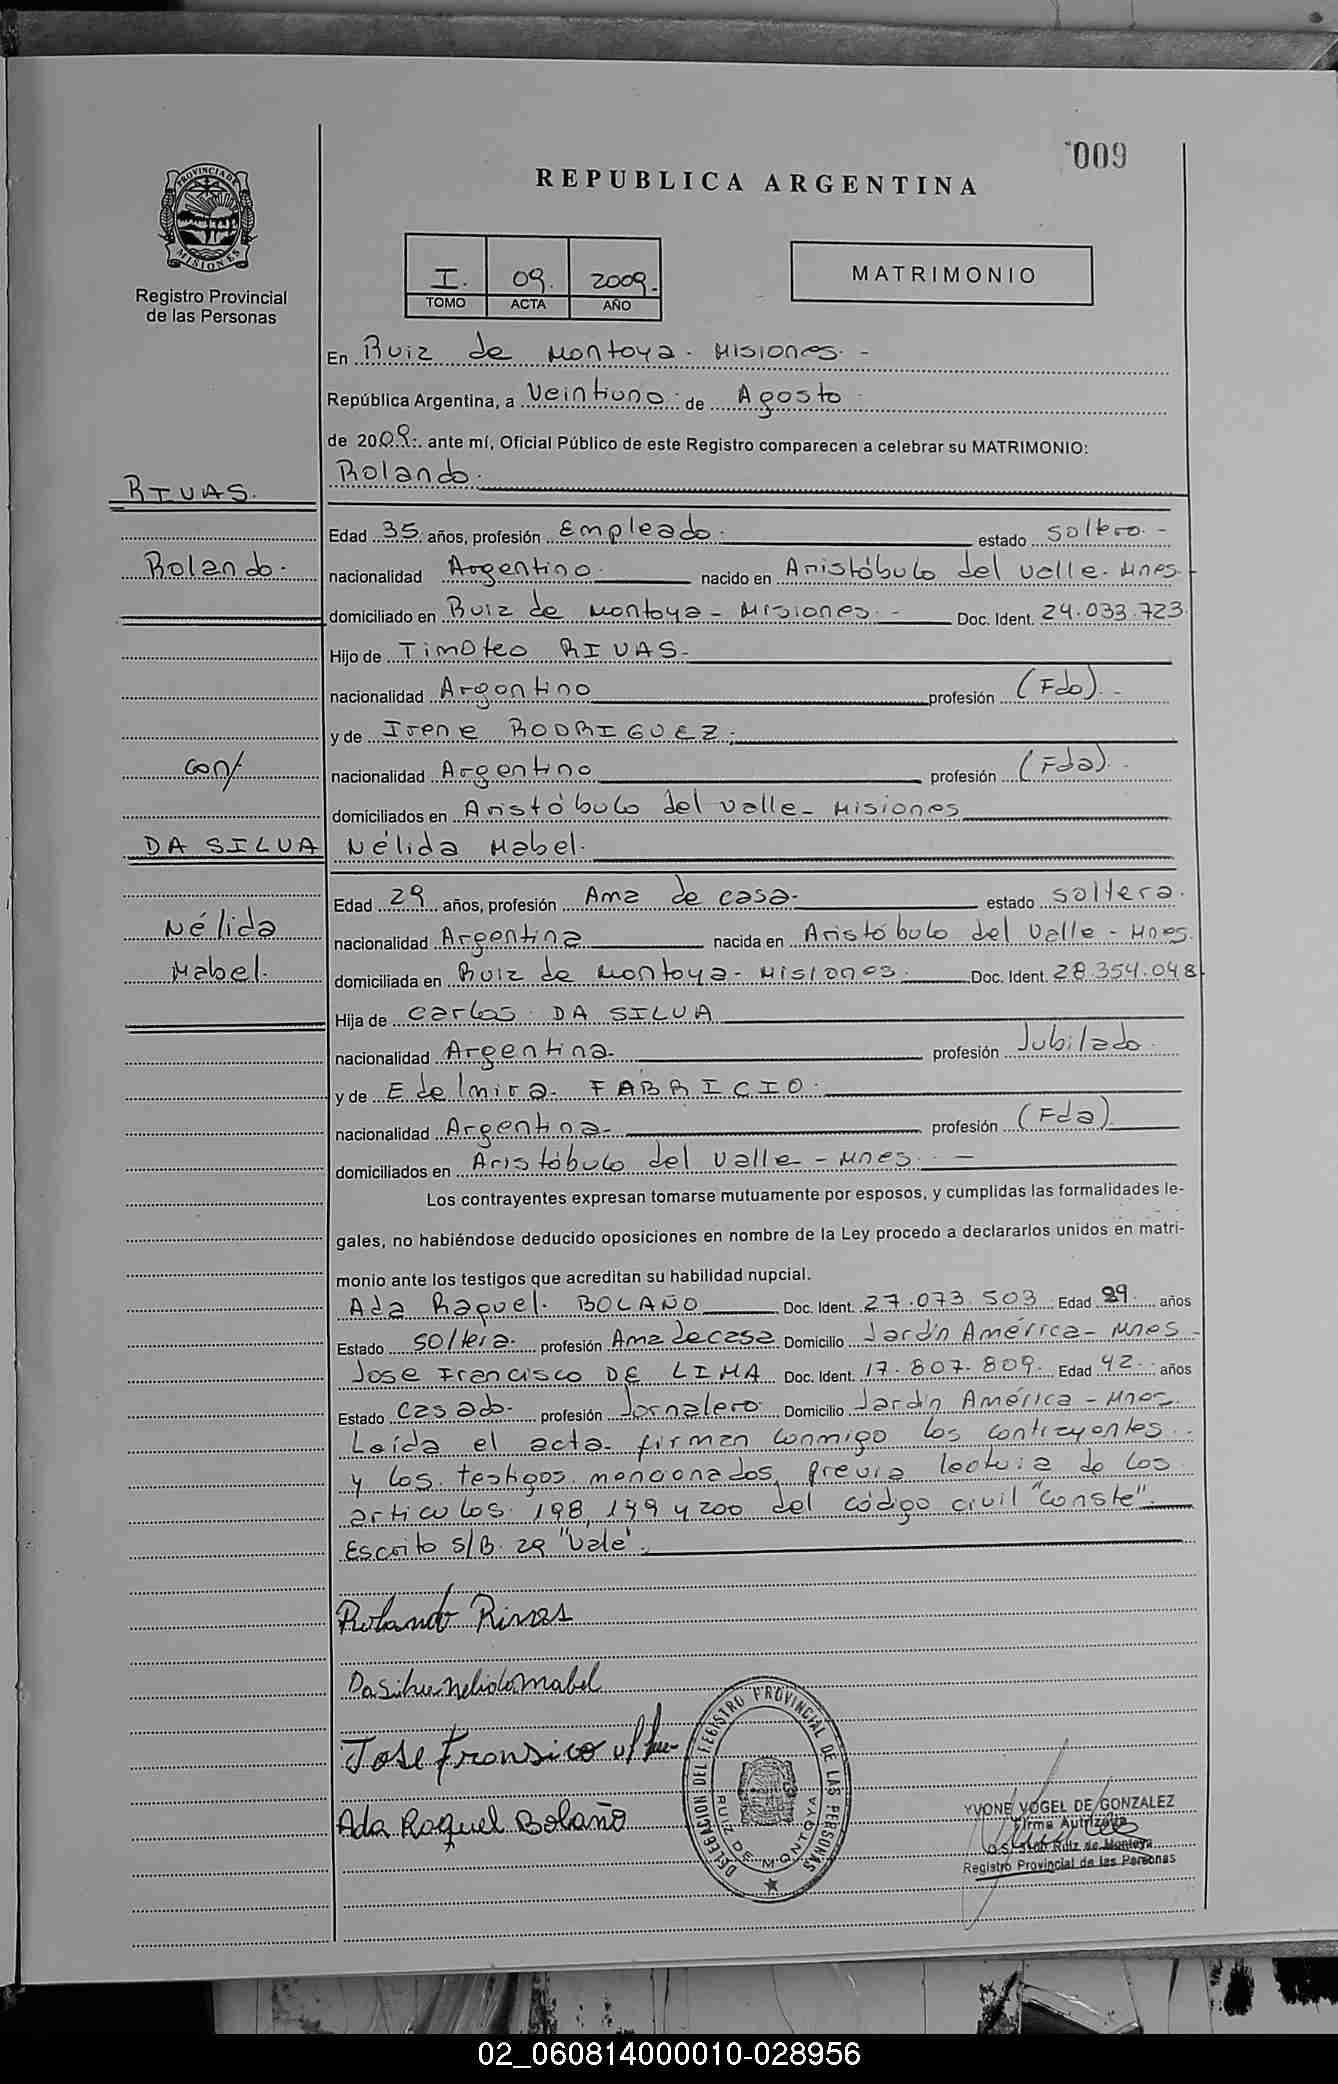 009
PROVINCIA DE
MISIONES
Registro Provincial
de las Personas
REPUBLICA ARGENTINA
I. 09. 2009.
TOMO ACTA AÑO
MATRIMONIO
En Ruiz de Montoya. Misiones. -
República Argentina, a Veintiuno. de Agosto
de 2009. ante mí, Oficial Público de este Registro comparecen a celebrar su MATRIMONIO:
RIVAS. Rolando.
Edad 35 años, profesión Empleado. estado soltero. -
Rolando. nacionalidad Argentino. nacido en Aristóbulo del Valle. Mnes.
domiciliado en Ruiz de Montoya - Misiones. - Doc. Ident. 24.033.723.
Hijo de Timoteo RIVAS.
nacionalidad Argentino profesión (Fdo). -
y de Irene RODRIGUEZ.
con/ nacionalidad Argentino profesión (Fda). -
domiciliados en Aristóbulo del Valle - Misiones
DA SILVA Nélida Mabel.
Edad 29 años, profesión Ama de casa. estado soltera.
Nélida nacionalidad Argentina nacida en Aristóbulo del Valle - Mnes.
Mabel. domiciliada en Ruiz de Montoya - Misiones. Doc. Ident. 28.354.048
Hija de Carlos DA SILVA
nacionalidad Argentina. profesión Jubilado.
y de Edelmira. FABRICIO.
nacionalidad Argentina. profesión (Fda)
domiciliados en Aristóbulo del Valle - Mnes. -
Los contrayentes expresan tomarse mutuamente por esposos, y cumplidas las formalidades le-
gales, no habiéndose deducido oposiciones en nombre de la Ley procedo a declararlos unidos en matri-
monio ante los testigos que acreditan su habilidad nupcial.
Ada Raquel. BOLAÑO Doc. Ident. 27.073.503 Edad 29. años
Estado soltera. profesión Ama de casa Domicilio Jardín América - Mnes -
Jose Francisco DE LIMA Doc. Ident. 17.807.809. Edad 42. años
Estado Casado. profesión Jornalero. Domicilio Jardín América - Mnes.
Leída el acta firman conmigo los contrayentes
y los testigos mencionados, previa lectura de los
articulos. 198, 199 y 200 del código civil "Conste".
Escrito S/B. 29 "Vale".
Rolando Rivas
Da Silva Nelida Mabel
Jose Fransico
Ada Raquel Bolaño
DELEGACION DEL REGISTRO PROVINCIAL DE LAS PERSONAS
RUIZ DE MONTOYA
YVONE VOGEL DE GONZALEZ
Firma Autrizada
Ruiz de Montoya
Registro Provincial de las Personas
02_060814000010-028956